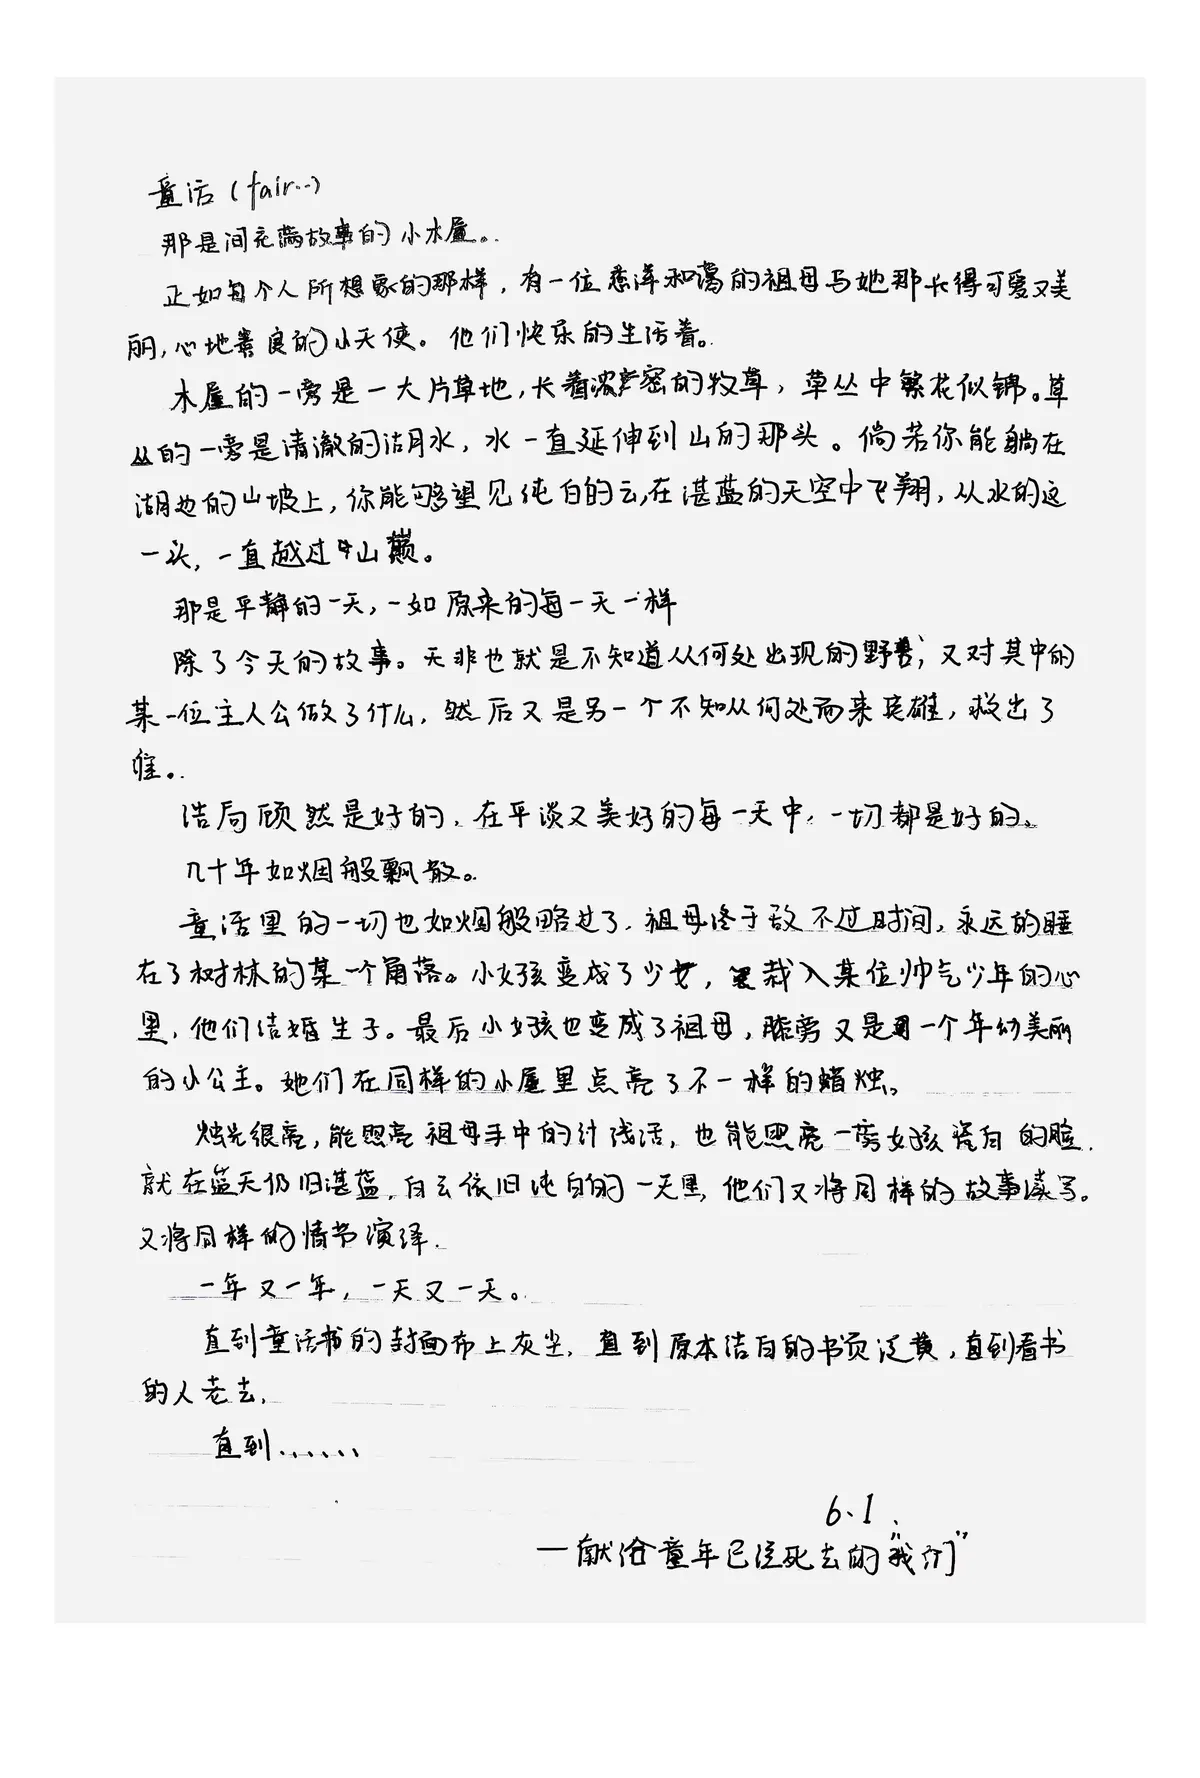 童话(fair..)
那是间充满故事的小木屋。
正如每个人所想象的那样，有一位慈祥和蔼的祖母与她那长得可爱又美
丽，心地善良的小天使。他们快乐的生活着。
木屋的一旁是一大片草地，长着浓密的牧草，草丛中繁花似锦。草
丛的一旁是清澈的湖水，水一直延伸到山的那头。倘若你能躺在
湖边的山坡上，你能够望见纯白的云，在湛蓝的天空中飞翔，从水的这
一头，一直越过山巅。
那是平静的一天，一如原来的每一天一样
除了今天的故事。无非也就是不知道从何处出现的野兽，又对其中的
某一位主人公做了什么，然后又是另一个不知从何处而来英雄，救出了
谁。
结局固然是好的，在平淡又美好的每一天中，一切都是好的、
几十年如烟般飘散。
童话里的一切也如烟般略过了，祖母终于敌不过时间，永远的睡
在了树林的某一个角落。小女孩变成了少女，栽入某位帅气少年的心
里，他们结婚生子。最后小女孩也变成了祖母，膝旁又是一个年幼美丽
的小公主。她们在同样的小屋里点亮了不一样的蜡烛。
烛光很亮，能照亮祖母手中的针线活，也能照亮一旁女孩瓷白的脸.
就在蓝天仍旧湛蓝，白云依旧纯白的一天里，他们又将同样的故事读写。
又将同样的情节演绎.
一年又一年，一天又一天。
直到童话书的封面布上灰尘，直到原本洁白的书页泛黄，直到看书
的人老去，
直到......
6.1.
—献给童年已经死去的“我们”